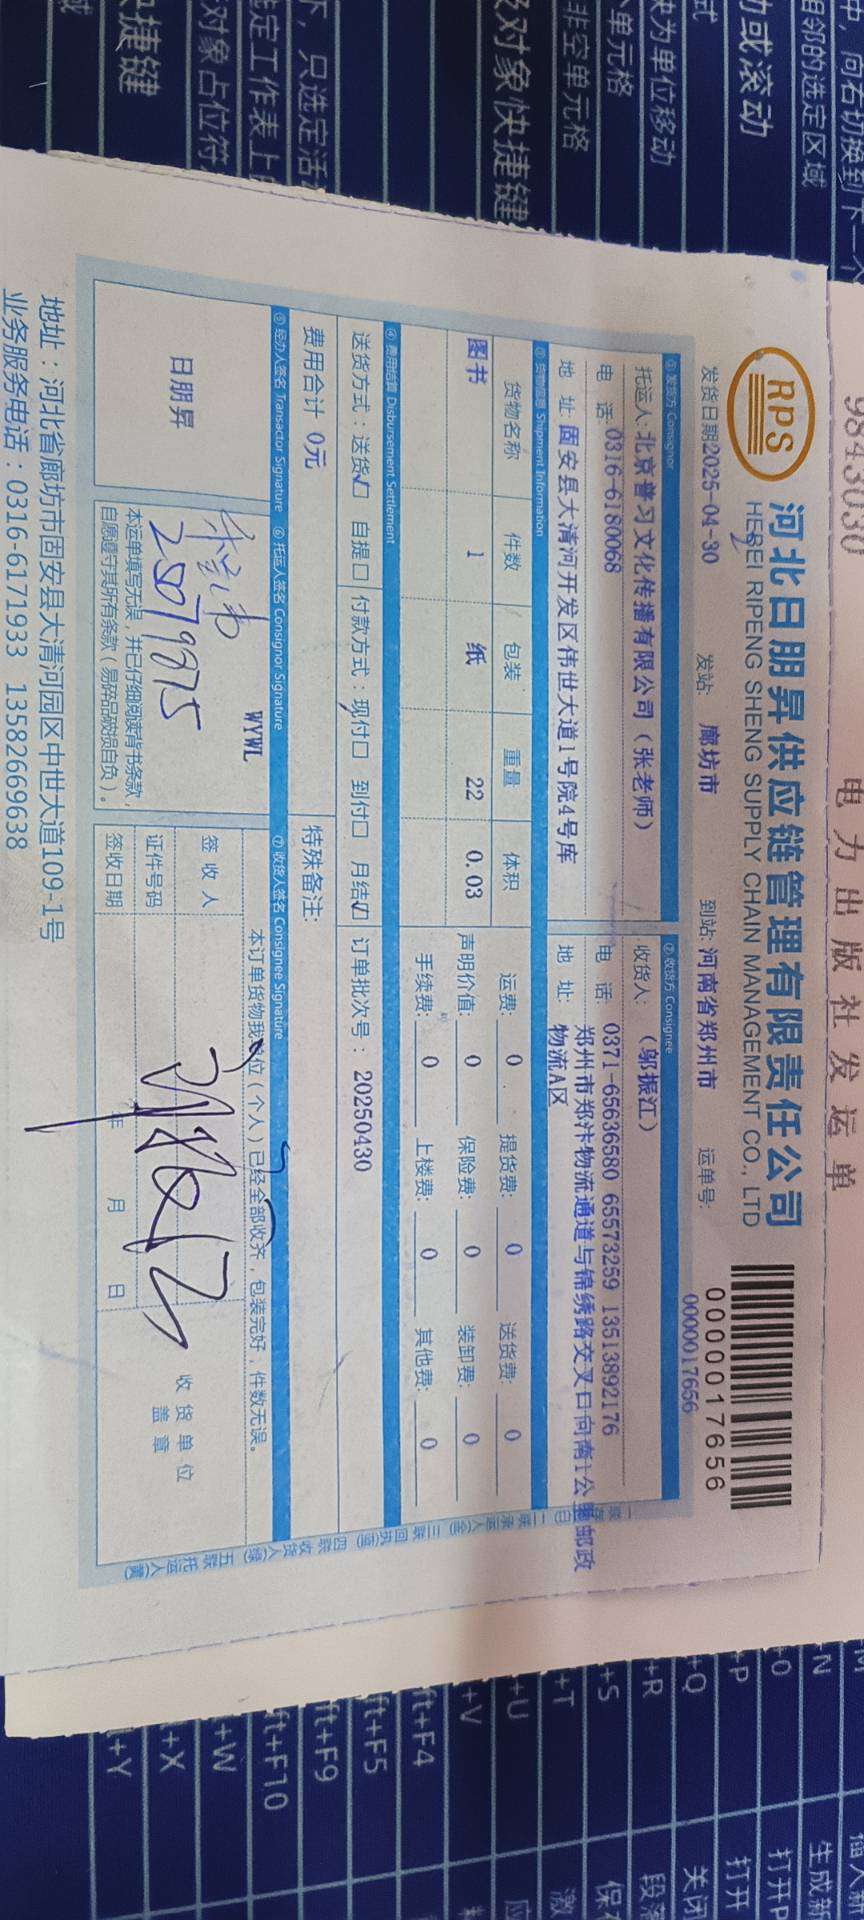 9843030
电力出版社发运单
RPS
河北日朋昇供应链管理有限责任公司
HEBEI RIPENG SHENG SUPPLY CHAIN MANAGEMENT CO., LTD
0000017656
发货日期2025-04-30 发站: 廊坊市 到站: 河南省郑州市 运单号: 0000017656
① 发货方 Consignor
② 收货方 Consignee
托运人: 北京普习文化传播有限公司（张老师）
收货人: （邬振江）
电 话: 0316-6180068
电 话: 0371-65636580 65573259 13513892176
地 址: 固安县大清河开发区伟世大道1号院4号库
地 址: 郑州市郑汴物流通道与锦绣路交叉口向南1公里邮政
物流A区
③ 货物信息 Shipment Information
货物名称 件数 包装 重量 体积
图书 1 纸 22 0.03
运费: 0 提货费: 0 送货费: 0
声明价值: 0 保险费: 0 装卸费: 0
手续费: 0 上楼费: 0 其他费: 0
④ 费用结算 Disbursement Settlement
送货方式: 送货☑ 自提☐ 付款方式: 现付☐ 到付☐ 月结☑ 订单批次号: 20250430
费用合计 0元
特殊备注:
⑤ 经办人签名 Transactor Signature
⑥ 托运人签名 Consignor Signature
⑦ 收货人签名 Consignee Signature
日朋昇
WYWL
25079875
本运单填写无误，并已仔细阅读背书条款，
自愿遵守其所有条款（易碎品破损自负）。
本订单货物我单位（个人）已经全部收齐，包装完好，件数无误。
签 收 人
证件号码
签收日期 年 月 日
收货单位
盖 章
地址：河北省廊坊市固安县大清河园区中世大道109-1号
业务服务电话：0316-6171933 13582669638
中，向右切换到下一个
相邻的选定区域
动或滚动
式
块为单位移动
单元格
非空单元格
及对象快捷键
下，只选定活
选定工作表上
对象占位符
快捷键
域
+N
+O
+P
+Q
+R
+S
+T
+U
+V
ft+F4
ft+F5
ft+F9
ft+F10
+W
+X
+Y
插入新
生成新
打开P
打开
关闭
段落
保
激
应